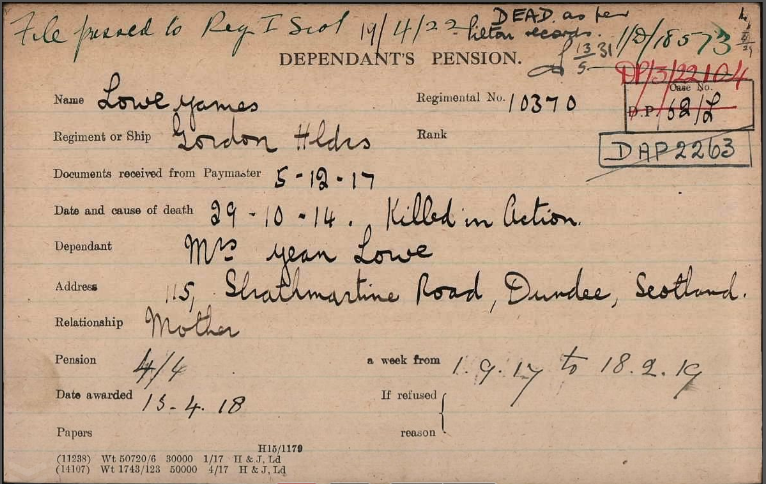 File passed to Reg I Scot 19/4/22
DEAD. as per
records.
13 31
5
1/D/18573
DEPENDANT'S PENSION.
DP/3/22104
Case No.
D.P. 52/L
DAP 2263
Name Lowe James Regimental No. 10370
Regiment or Ship Gordon Hldrs Rank
Documents received from Paymaster 5-12-17
Date and cause of death 29-10-14. Killed in Action.
Dependant Mrs Jean Lowe
Address 115, Strathmartine Road, Dundee, Scotland.
Relationship Mother
Pension 4/4 a week from 1.9.17 to 18.2.19
Date awarded 13-4.18 If refused
Papers reason
H15/1179
(11238) Wt 50720/6 30000 1/17 H & J, Ld
(14107) Wt 1743/123 50000 4/17 H & J, Ld